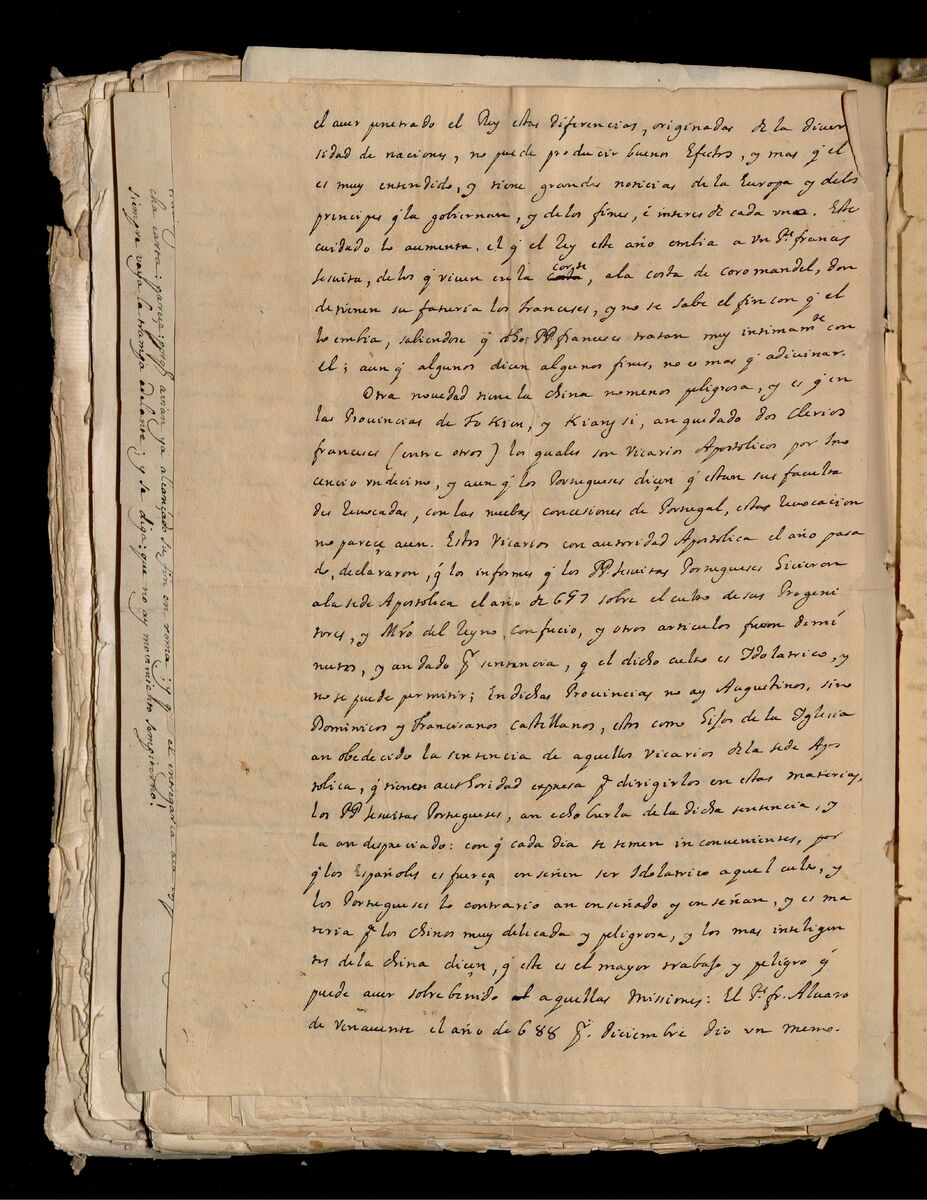 el aver penetrado el Rey estas diferencias, originadas de la diver
sidad de naciones, no puede producir buenos Efectos, y mas q̃ el
es muy entendido, y tiene grandes noticias de la Europa y delos
principes q̃ la gobiernan, y de los fines, é interes de cada uno. Este
cuidado lo aumenta. el q̃ el Rey este año embia a un Pe. frances
Jesuita, de los q̃ viven en la corte, a la costa de coromandel, don
de tienen su fatoria los franceses, y no se sabe el fin con q̃ el
lo embia, sabiendose q̃ dhos PP. franceses tratan muy intimamte con
el; aun q̃ algunos dicen algunos fines, no es mas q̃ adivinar.
Otra novedad tiene la China no menos peligrosa, y es q̃ en
las Provincias de Fo Kien, y Kiangsi, an quedado dos Clerigos
franceses (entre otros) los quales son Vicarios Apostolicos por Ino
cencio undecimo, y aun q̃ los Portugueses diçen q̃ estan sus faculta
des revocadas, con las nuebas concesiones de Portugal, estas revocacion
no pareçe aun. Estos Vicarios con autoridad Apostolica el año pasa
do, declararon, q̃ los informes q̃ los PP. Jesuitas Portugueses hicieron
a la sede Apostolica el año de 657 sobre el culto de sus Progeni
tores, y Mro del Reyno, confucio, y otros articulos fueron demi
nutos, y an dado pr sentencia, q el dicho culto es Idolatrico, y
no se puede permitir; En dichas Provincias no ay Augustinos, sino
Dominicos y Franciscanos Castellanos, estos como hijos de la Iglesia
an obedecido la sentencia de aquellos Vicarios de la sede Apos
tolica, q̃ tienen authoridad expresa pa dirigirlos en estas materias,
los PP. Jesuitas Portugueses, an echo burla de la dicha sentencia, y
la an despreciado: con q̃ cada dia se temen inconvenientes, por
q̃ los Españoles es fuerça enseñen ser Idolatrico aquel culto, y
los Portugueses lo contrario an enseñado y enseñan, y es ma
teria pa los chinos muy delicada y peligrosa, y los mas inteligen
tes de la China diçen, q̃ este es el mayor trabajo y peligro q̃
puede aver sobrebenido a aquellas Missiones: El Pe. fr. Alvaro
de Venavente el año de 688 pr. diciembre dio un memo-
cha carta: pareçia avian ya alcançado su fin en roma; y el entregarla
siempre vaya la tramoya adelante; y se diga: que no ay movimiento sempiterno!